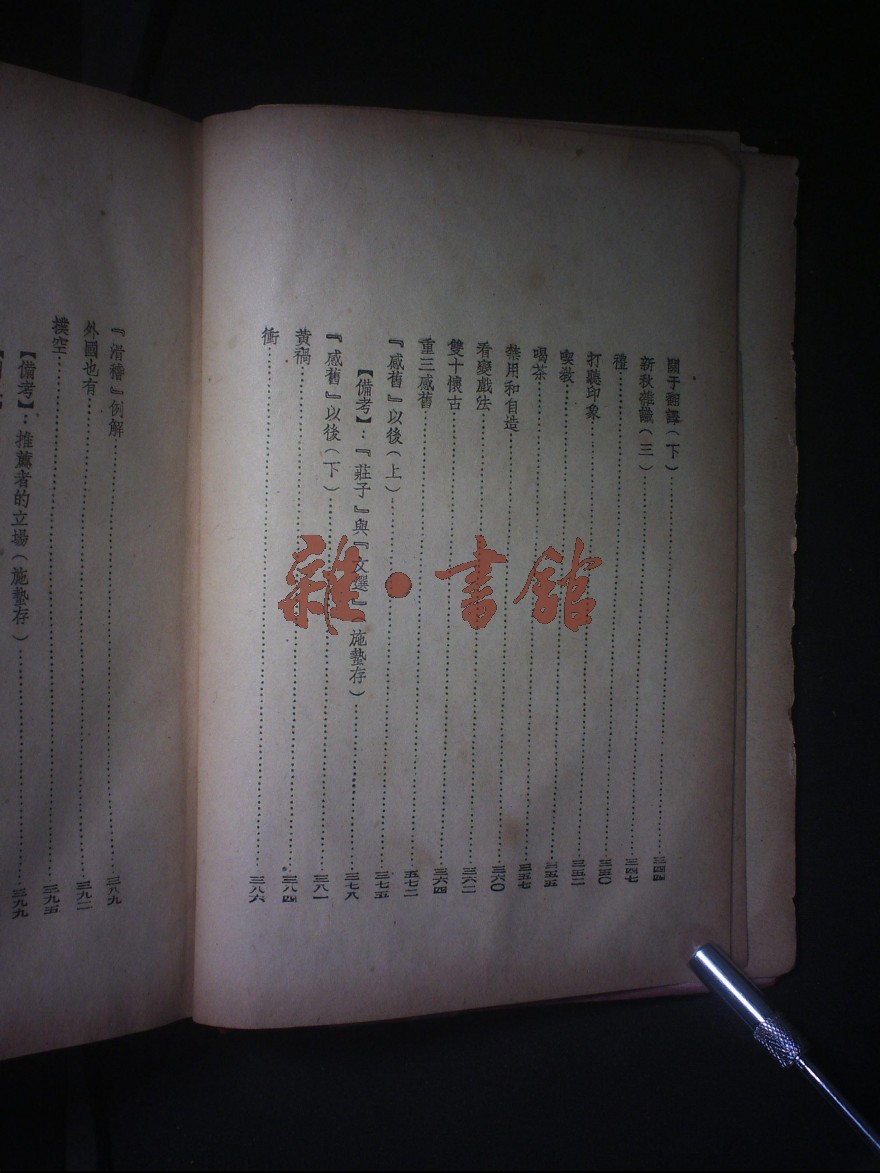 關于翻譯(下)……三四四
新秋雜識(三)……三四七
禮……三五〇
打聽印象……三五二
喫教……三五五
喝茶……三五七
禁用和自造……三六〇
看變戲法……三六二
雙十懷古……三六四
重三感舊……五七二
『感舊』以後(上)……三七五
【備考】:『莊子』與『文選』 施蟄存)……三七八
『感舊』以後(下)……三八一
黃禍……三八四
衝……三八六
『滑稽』例解……三八九
外國也有……三九二
撲空……三九五
【備考】:推薦者的立場(施蟄存)……三九九
雜·書館